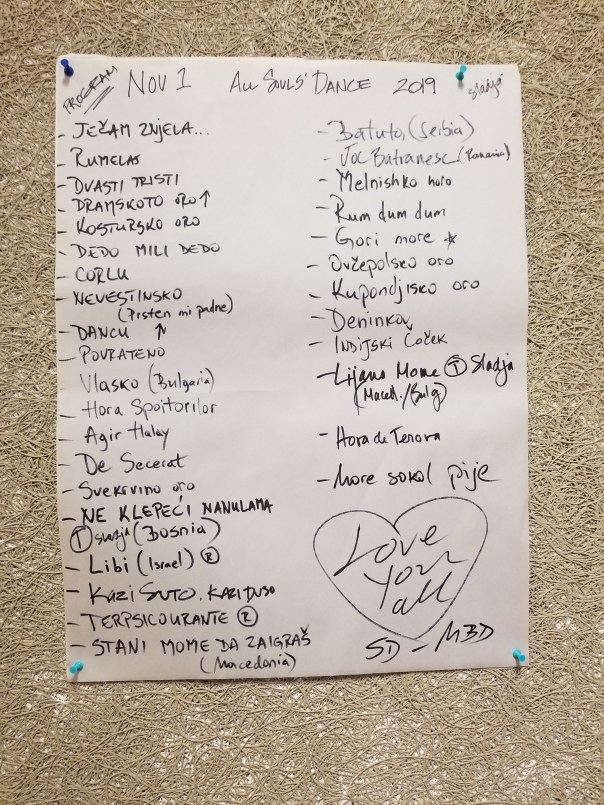 PROGRAM
NOV 1 ALL SOULS' DANCE 2019
Sladja
- JEČAM ŽNJELA...
- RUMELAJ
- DVASTI TRISTI
- DRAMSKOTO ORO ↑
- KOSTURSKO ORO
- DEDO MILI DEDO
- CORLU
- NEVESTINSKO
(Prsten mi padne)
- DANCU
- POVRATENO
- Vlasko (Bulgaria)
- Hora Spoitorilor
- Agir Halay
- De Secerat
- Svekrvino oro
- NE KLEPEĆI NANULAMA
Ⓣ Sladja (Bosnia)
- Libi (Israel) Ⓡ
- KAZI SUTO, KAZI DUSO
- TERPSICOURANTE Ⓡ
- STANI MOME DA ZAIGRAŠ
(Macedonia)
- Batuta (Serbia)
- Joc Batranesc (Romania)
- Melnishko horo
- Rum dum dum
- Gori more ☆
- Ovčepolsko oro
- Kupondjisko oro
- Deninka
- INDIJSKI Čoček
- Lijano Mome Ⓣ Sladja
(Maced./Bulg)
- Hora de
- More sokol pije
Love
you
all
SD - MBD